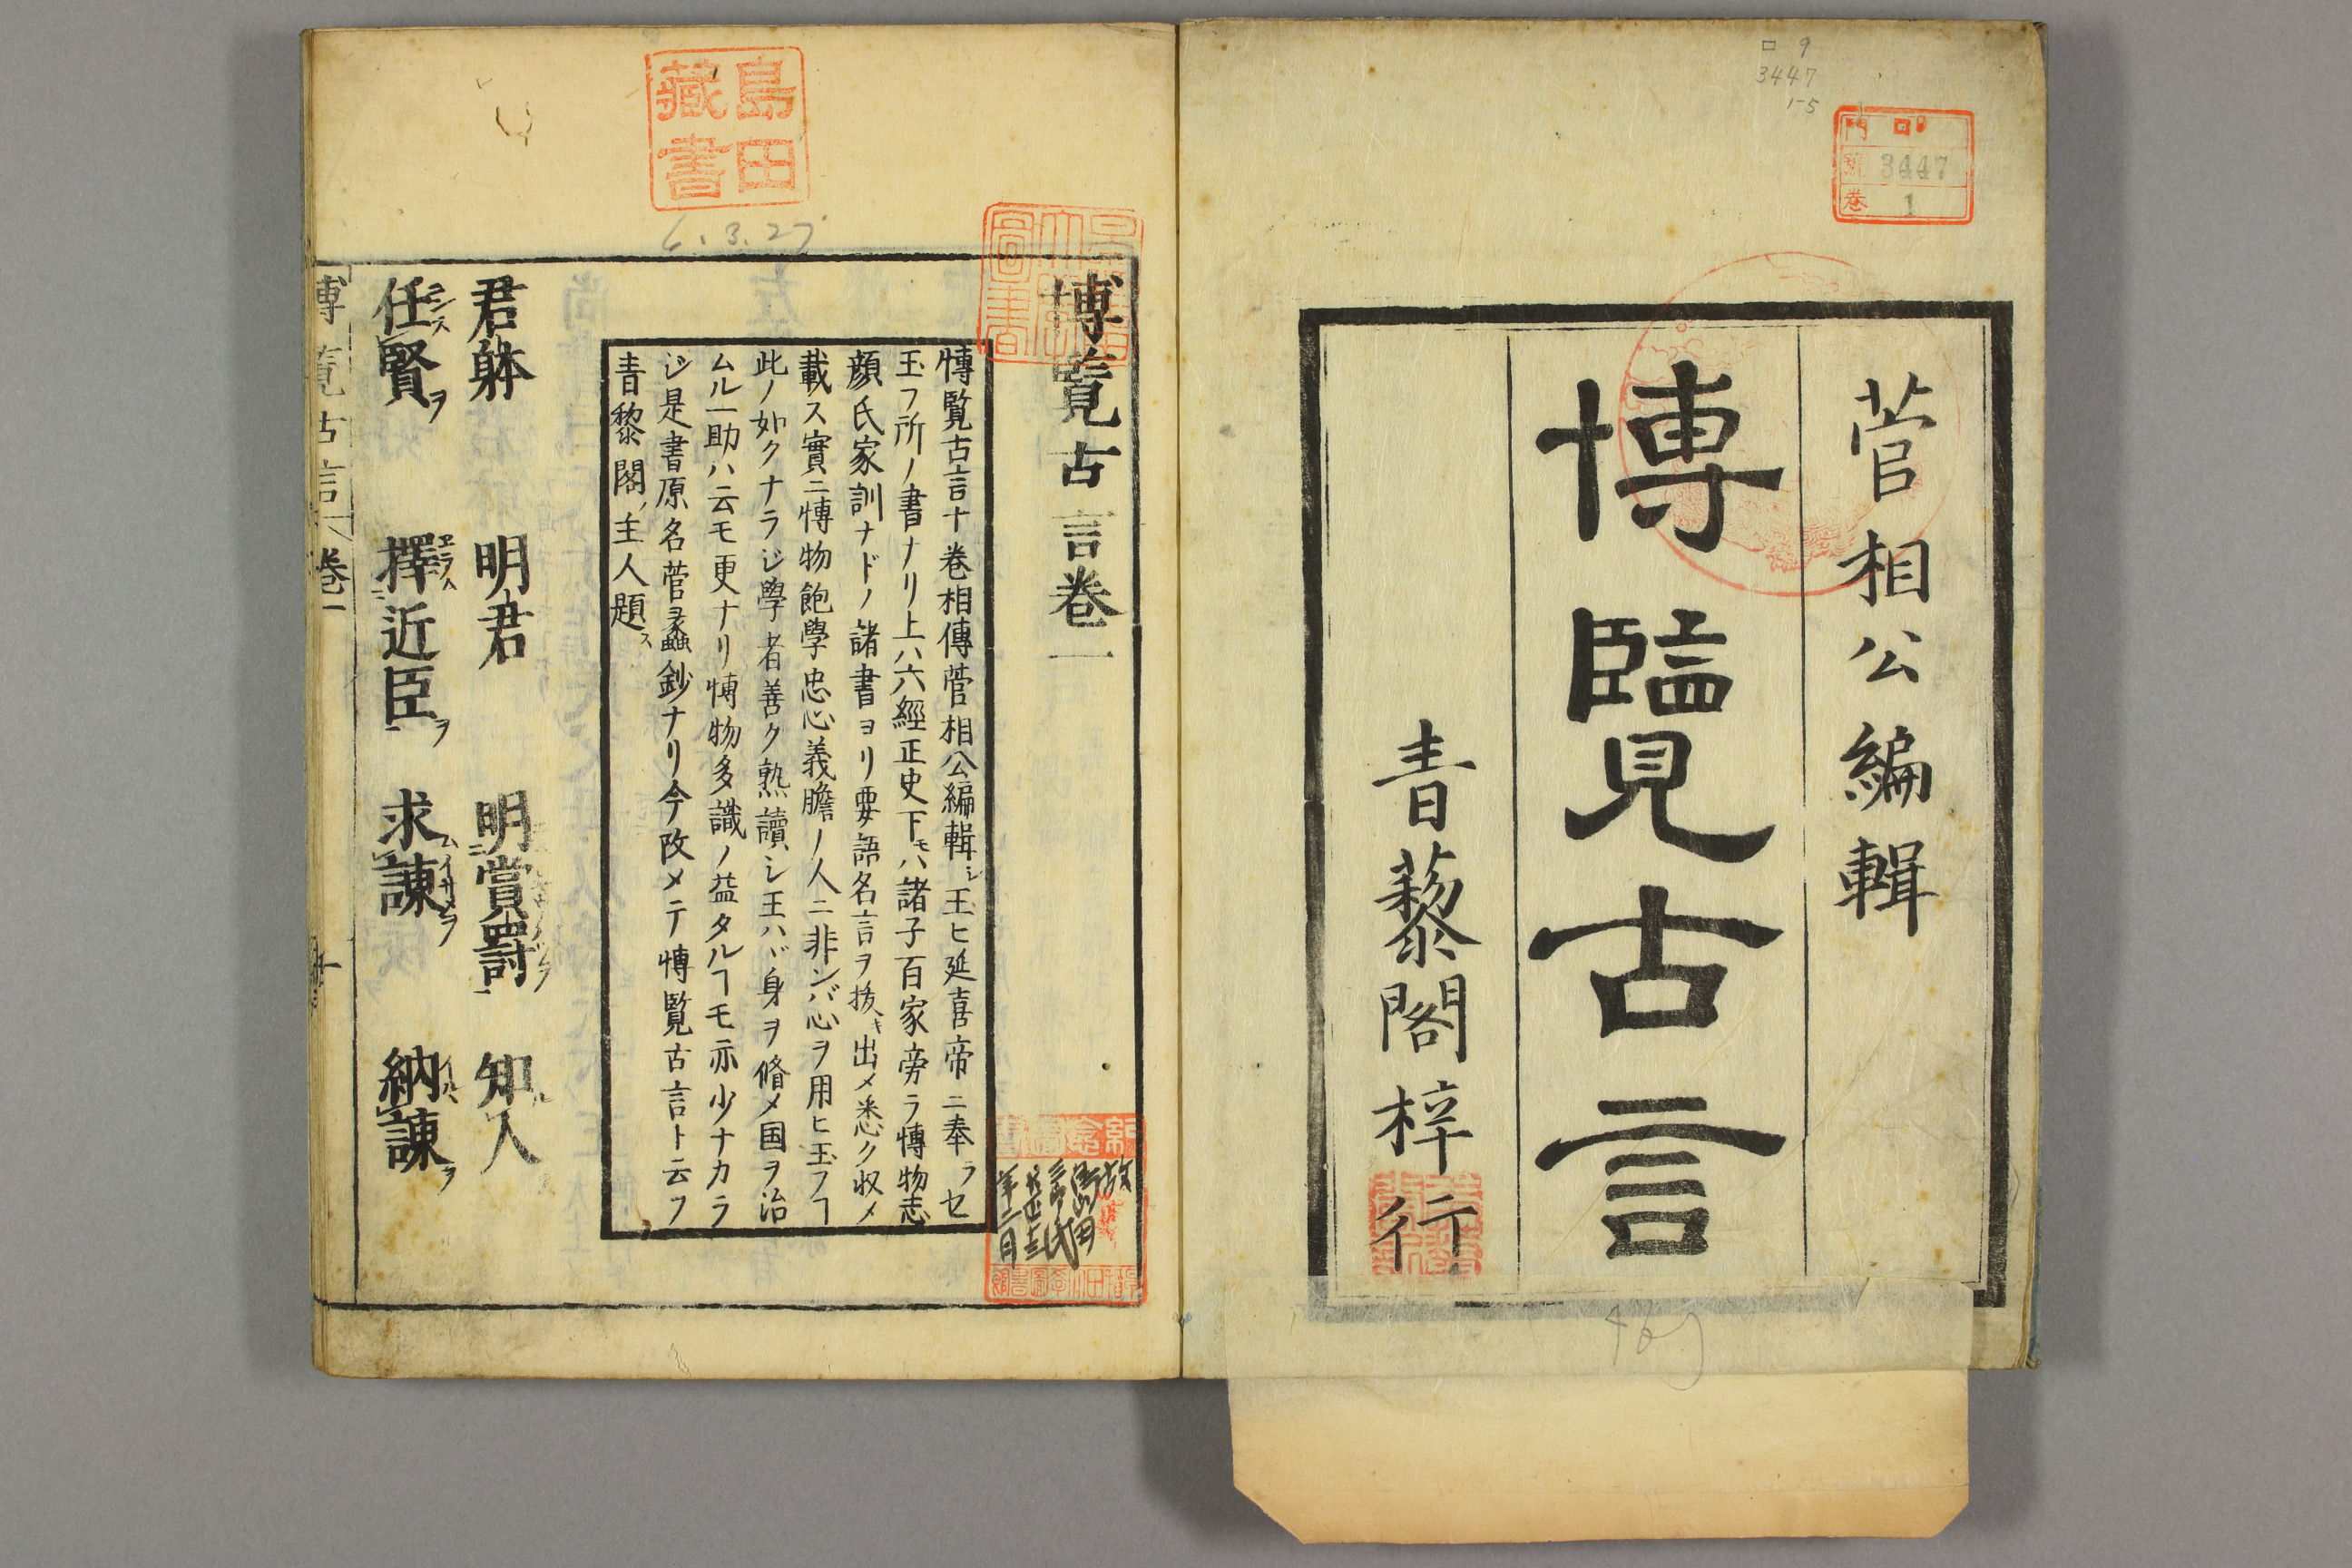 ロ 9
3447
1-5
門
號 3447
巻 1
菅相公編輯
博覽古言
青藜閣梓行
465
島田
藏書
6.3.27
博覧古言巻一
愽覧古言十巻相傳菅相公編輯シ玉ヒ延喜帝ニ奉ラセ
玉フ所ノ書ナリ上ハ六經正史下モハ諸子百家旁ラ愽物志
顔氏家訓ナドノ諸書ヨリ要語名言ヲ拔キ出メ悉ク収メ
載ス實ニ愽物飽學忠心義膽ノ人ニ非ンバ心ヲ用ヒ玉フヿ
此ノ如クナラジ學者善ク熟讀シ玉ハヾ身ヲ脩メ国ヲ治
ムル一助ハ云モ更ナリ愽物多識ノ益タルヿモ亦少ナカラ
ジ是書原名菅蠡鈔ナリ今改メテ愽覧古言ト云フ
青黎閣ノ主人題ス
君躰 明君 明賞罰 知人
任賢ヲ 擇近臣ヲ 求諌 納諌ヲ
博覧古言 巻一
故
島田
三郎氏
年二月